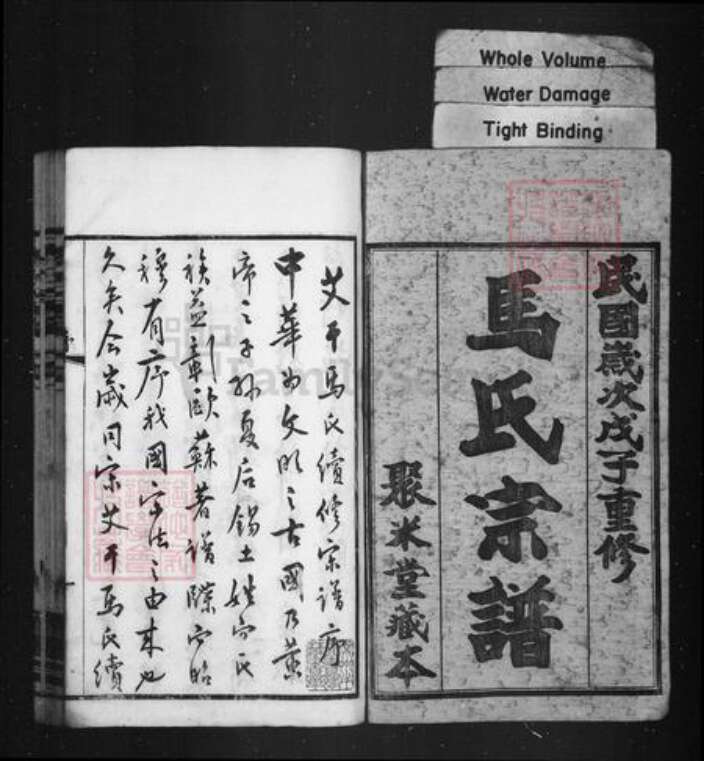 Whole Volume
Water Damage
Tight Binding
民國歲次戊子重修
馬氏宗譜
聚米堂藏本
艾干馬氏續修宗譜序
中華為文明之古國乃黃
帝之子孫夏后錫土姓而氏
族益章歐蘇著譜牒而昭
穆有序我國宗法之由來也
久矣今歲同宗艾干馬氏續
FamilySearch